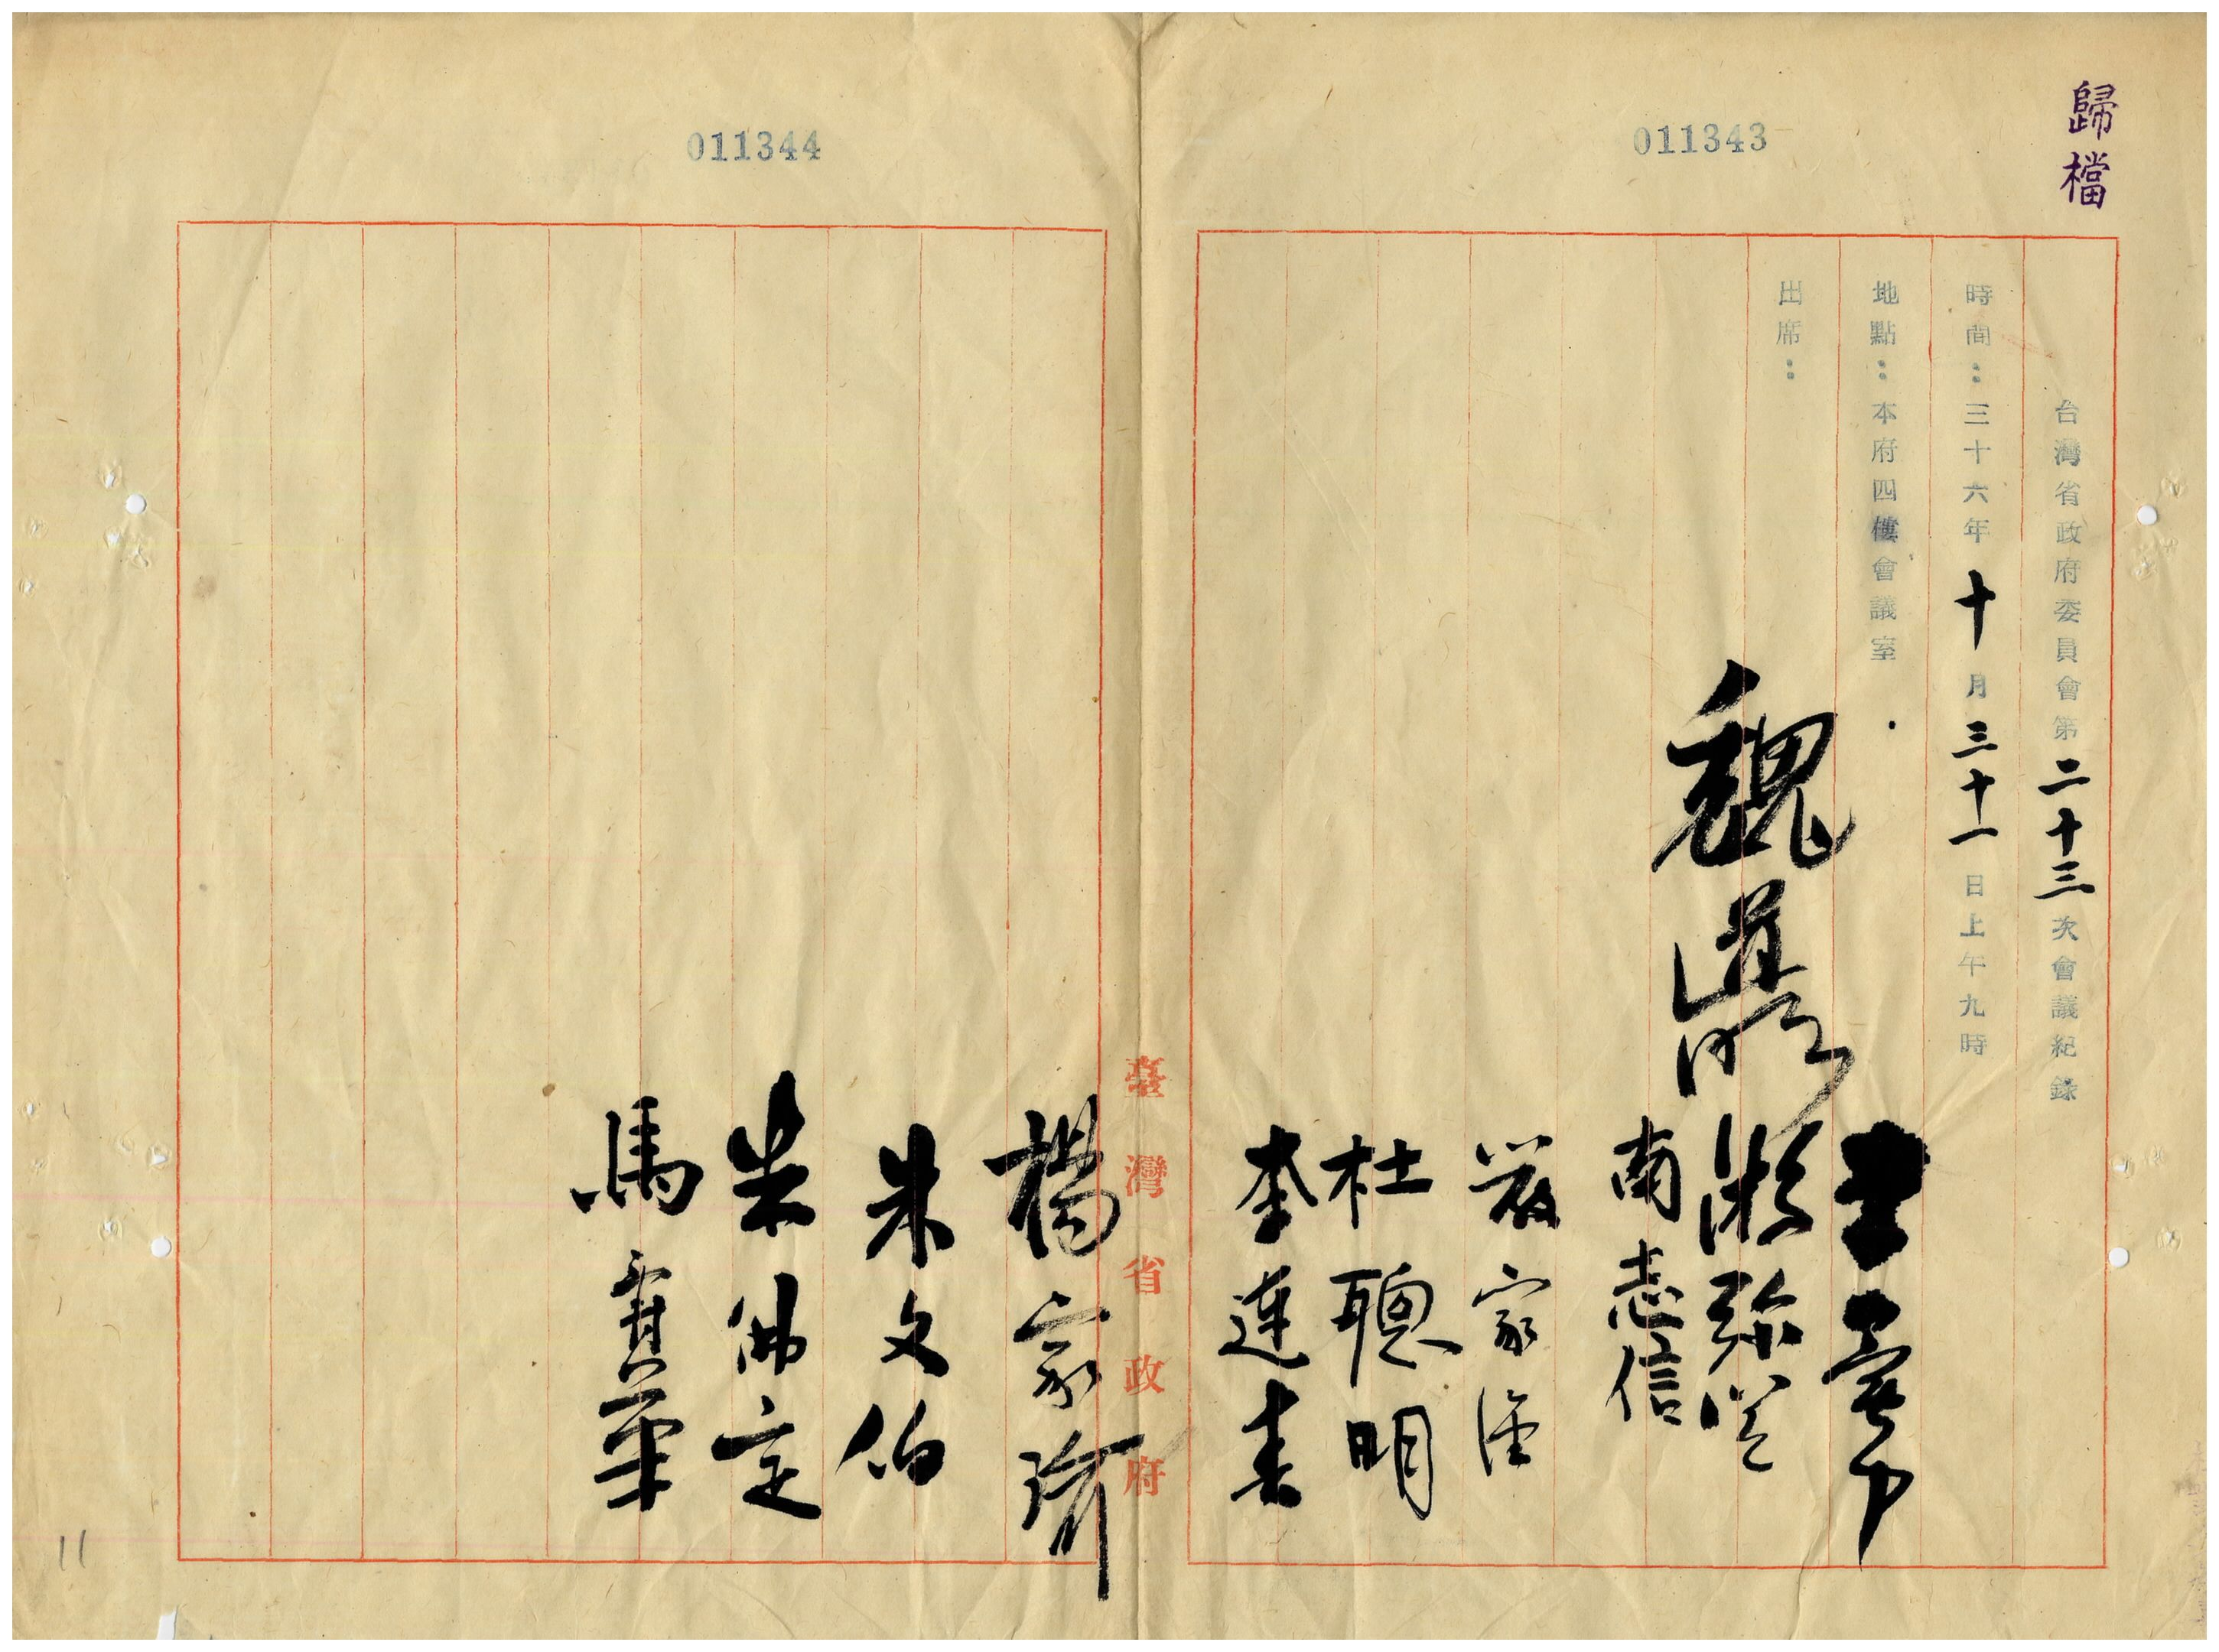 歸檔
011343
台灣省政府委員會第二十三次會議紀錄
時間：三十六年十月三十一日上午九時
地點：本府四樓會議室
出席：
魏道明
游彌堅
南志信
嚴家淦
杜聰明
李連春
臺灣省政府
011344
楊家瑜
朱文伯
朱佛定
馬壽華
11